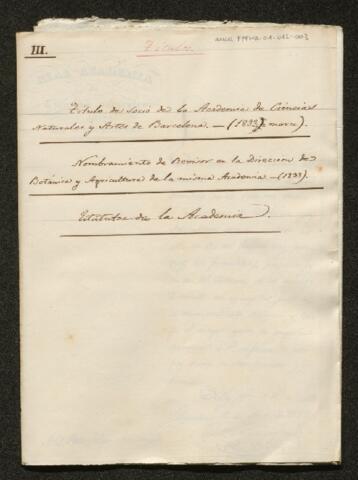 III.
Títulos
Título de Socio de la Academia de Ciencias
Naturales y Artes de Barcelona. — (1833, marzo).
Nombramiento de Revisor en la Direccion de
Botánica y Agricultura de la misma Academia — (1833).
Estatutos de la Academia.